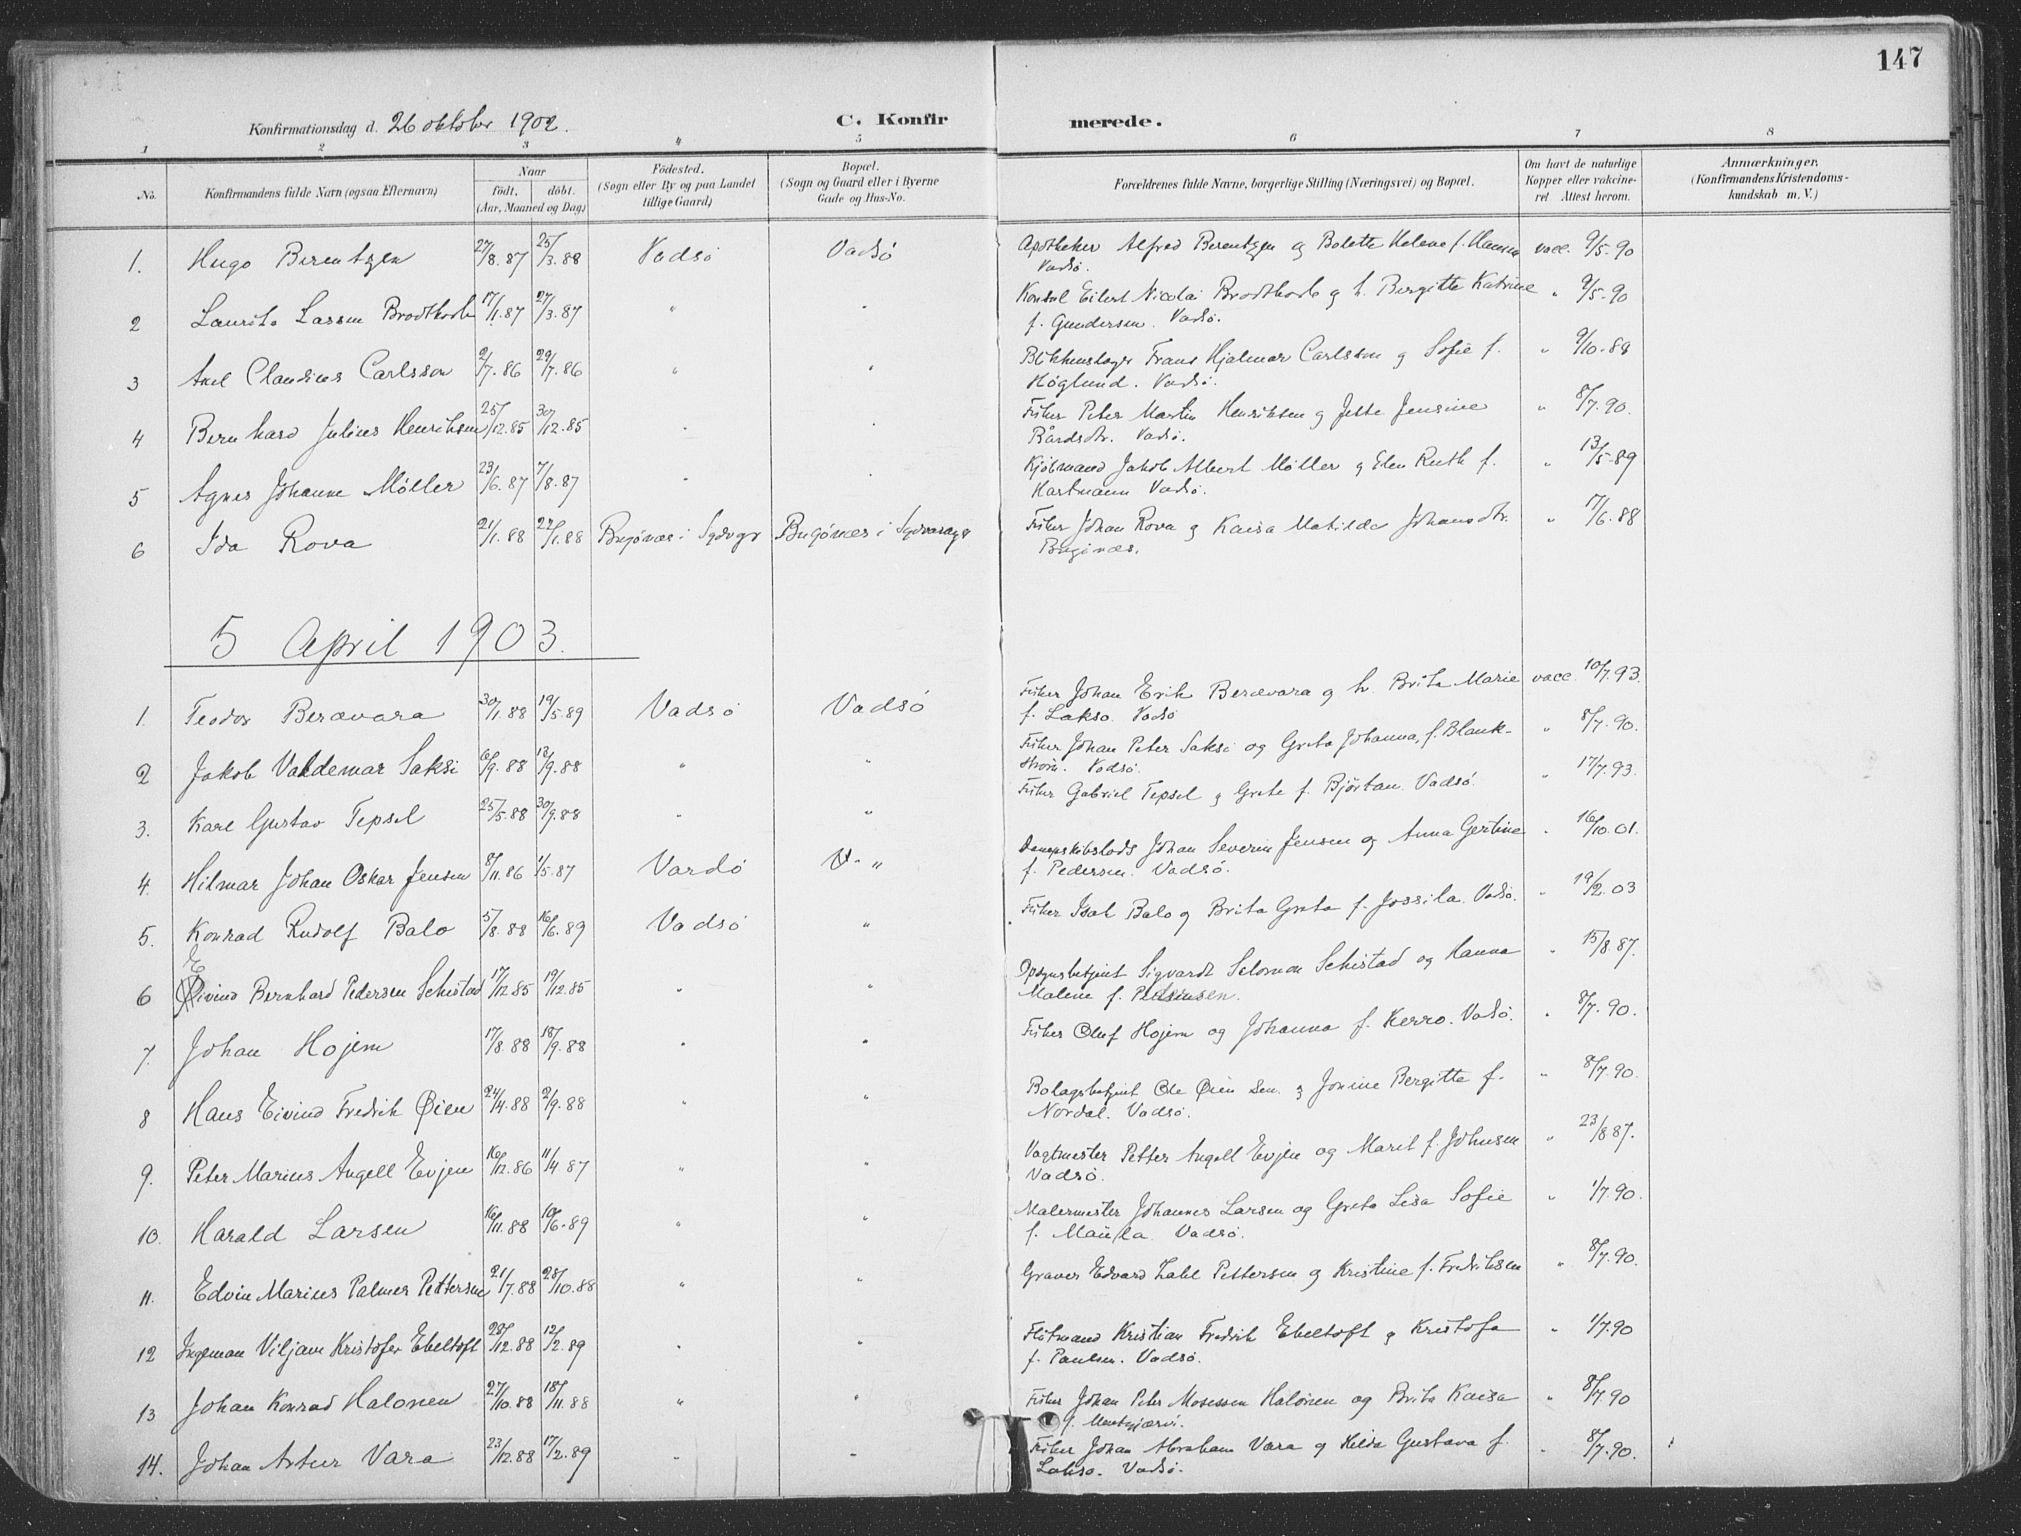 147
Konfirmationsdag d. 26 oktober 1902. C. Konfirmerede.
1 2 3 4 5 6 7 8
No. Konfirmandens fulde Navn (ogsaa Efternavn) Naar født. døbt. (Aar, Maaned og Dag) Fødested. (Sogn eller By og paa Landet tillige Gaard) Bopæl. (Sogn og Gaard eller i Byerne Gade og Hus-No. Forældrenes fulde Navne, borgerlige Stilling (Næringsvei) og Bopæl. Om havt de naturlige Kopper eller vakcineret. Attest herom. Anmærkninger. (Konfirmandens Kristendomskundskab m. V.)
1. Hugo Berentzen 27/8.87 25/3.88 Vadsø Vadsø Apotheker Alfred Berentzen og Bolette Helene f. Hansen vacc. 9/5-90
Vadsø.
2 Laurits Lassen Brodtkorb 17/1.87 27/3.87 " " Konsul Eilert Nicolai Brodtkorb og h. Bergitte Katrine " 9/5-90
f. Gundersen. Vadsø.
3 Axel Claudius Carlsson 2/7.86 29/7.86 " " Blikkenslager Frans Hjalmar Carlsson og Sofie f. " 9/10-88
Höglund. Vadsø.
4 Bernhard Julius Henriksen 25/12.85 30/12.85 " " Fisker Peter Martin Henriksen og Jette Jensine " 8/7.90.
Bårdsdtr. Vadsø.
5 Agnes Johanne Møller 23/6.87 7/8.87 " " Kjøbmand Jakob Albert Møller og Elen Ruth f. " 13/5-89
Hartmann Vadsø.
6 Ida Rova 21/1.88 22/1.88 Bugønæs i Sydvgr Bugønæs i Sydvarang Fisker Johan Rova og Kaisa Matilde Johansdtr. " 17/6.88
Buginæs.
5 April 1903.
1. Teodor Beravara 30/1.88 19/5.89 Vadsø Vadsø Fisker Johan Erik Beravara og h. Brita Marie vacc. 10/7.93.
f. Lakso. Vadsø
2 Jakob Valdemar Saksi 6/9.88 18/9.88 " " Fisker Johan Peter Saksi og Greta Johanna, f. Blank- " 8/7.90.
strøm. Vadsø.
3. Karl Gustav Tepsel 25/5.88 30/9.88 " " Fisker Gabriel Tepsel og Grete f. Björtan. Vadsø. " 17/7.93.
4. Hilmar Johan Oskar Jensen 8/11.86 1/5.87 Vardø V. " Johan Severin Jensen og Anna Gertine " 16/10.01.
f. Pedersen. Vadsø.
5. Konrad Rudolf Balo 5/8.88 16/6.89 Vadsø " Fisker Isak Balo og Brita Greta f. Jossila. Vadsø. " 19/2.03
E
6 Øivind Bernhard Pedersen Schistad 17/12.85 19/12.85 " " Opsynsbetjent Sigvardt Solomon Schistad og Hanna " 15/8 87.
Malene f. Pedersen.
7. Johan Hojem 17/8.88 18/9.88 " " Fisker Oluf Hojem og Johanna f. Kerro. Vadsø. " 8/7.90.
8 Hans Eivind Fredrik Øien 24/4.88 2/9.88 " " Bolagsbetjent Ole Øien sen. og Jonine Bergitte f. " 8/7.90.
Nordal. Vadsø.
9. Peter Marius Angell Evjen 16/12.86 11/4 87 " " Vagtmester Petter Angell Evjen og Marit f. Johnsen " 23/8 87.
Vadsø.
10. Harald Larsen 16/11.88 10/6.89 " " Malermester Johannes Larsen og Greta Lisa Sofie " 1/7.90.
f. Maula. Vadsø.
11. Edvin Marius Palmer Pettersen 21/7.88 28/10.88 " " Graver Edvard Zahl Pettersen og Kristine f. Fredriksen " 8/7.90.
12 Ingeman Viljam Kristofer Ebeltoft 28/12.88 12/2.89 " " Flötmand Kristian Fredrik Ebeltoft og Kristofa " 1/7.90
f. Paulsen. Vadsø.
13 Johan Konrad Halonen 27/10.88 18/11.88 " " Fisker Johan Peter Mosessen Halonen og Brita Kaisa " 8/7.90
14. Johan Artur Vara 23/12.88 17/2.89 " " Fisker Johan Abraham Vara og Hilda Gustava f. " 8/7.90.
Lakso. Vadsø.